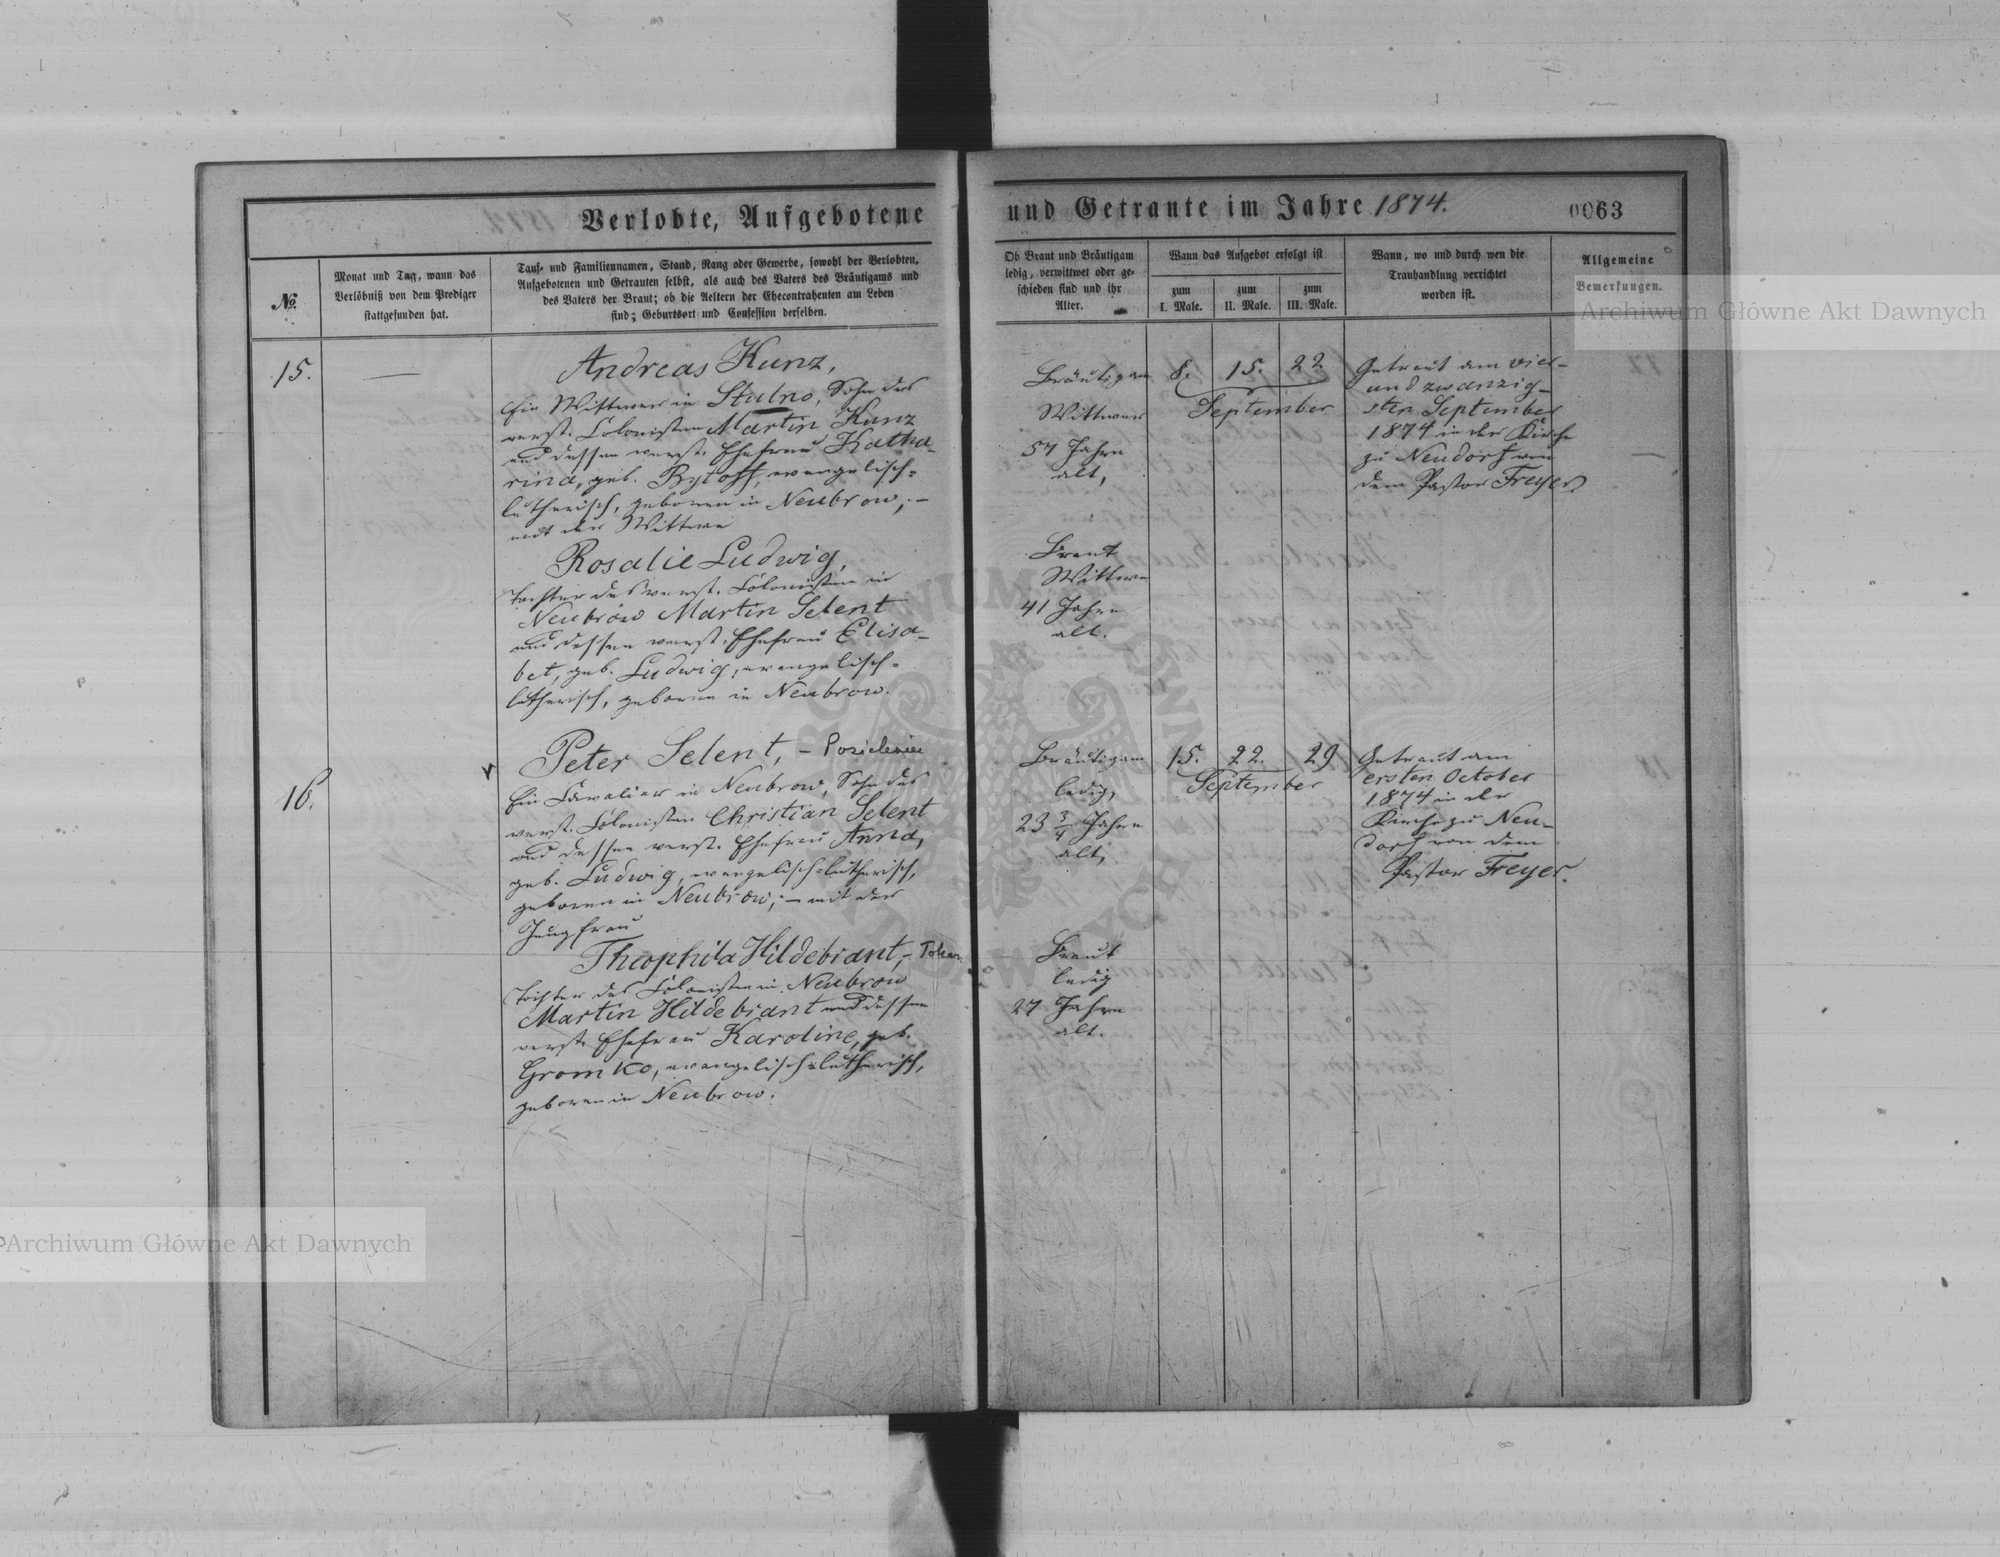 Verlobte, Aufgebotene und Getraute im Jahre 1874.
0063
No.
Monat und Tag, wann das
Verlöbniß von dem Prediger
stattgefunden hat.
Tauf- und Familiennamen, Stand, Rang oder Gewerbe, sowohl der Verlobten,
Aufgebotenen und Getrauten selbst, als auch des Vaters des Bräutigams und
des Vaters der Braut; ob die Aeltern der Ehecontrahenten am Leben
sind; Geburtsort und Confession derselben.
Ob Braut und Bräutigam
ledig, verwittwet oder ge-
schieden sind und ihr
Alter.
Wann das Aufgebot erfolgt ist
zum
I. Male.
zum
II. Male.
zum
III. Male.
Wann, wo und durch wen die
Trauhandlung verrichtet
worden ist.
Allgemeine
Bemerkungen.
Archiwum Główne Akt Dawnych
15.
Andreas Kunz,
Ein Wittwer in Stulno, Sohn des
verst. Colonisten Martin Kunz
und dessen verst. Ehefrau Katha-
rina, geb. Rytoff, evangelisch-
lutherisch, geboren in Neubrow; –
mit der Wittwe
Rosalie Ludwig,
Tochter des verst. Colonisten in
Neubrow Martin Selent
und dessen verst. Ehefrau Elisa-
bet, geb. Ludwig, evangelisch-
lutherisch, geboren in Neubrow.
Bräutigam
Wittwer
57 Jahre
alt,
Braut
Wittwe
41 Jahre
alt.
8. 15. 22
September
Getraut am vier-
und zwanzig-
sten September
1874 in der Kirche
zu Neudorf von
dem Pastor Freyer.
16.
Peter Selent, –
Ein Cavalier in Neubrow, Sohn des
verst. Colonisten Christian Selent
und dessen verst. Ehefrau Anna,
geb. Ludwig, evangelisch-lutherisch,
geboren in Neubrow; – mit der
Jungfrau
Theophila Hildebrant, –
Tochter des Colonisten in Neubrow
Martin Hildebrant und dessen
verst. Ehefrau Karoline, geb.
Gromko, evangelisch-lutherisch,
geboren in Neubrow.
Bräutigam
ledig,
23 3/4 Jahre
alt,
Braut
ledig
27 Jahre
alt.
15. 22. 29
September
Getraut am
ersten October
1874 in der
Kirche zu Neu-
dorf von dem
Pastor Freyer.
Archiwum Główne Akt Dawnych